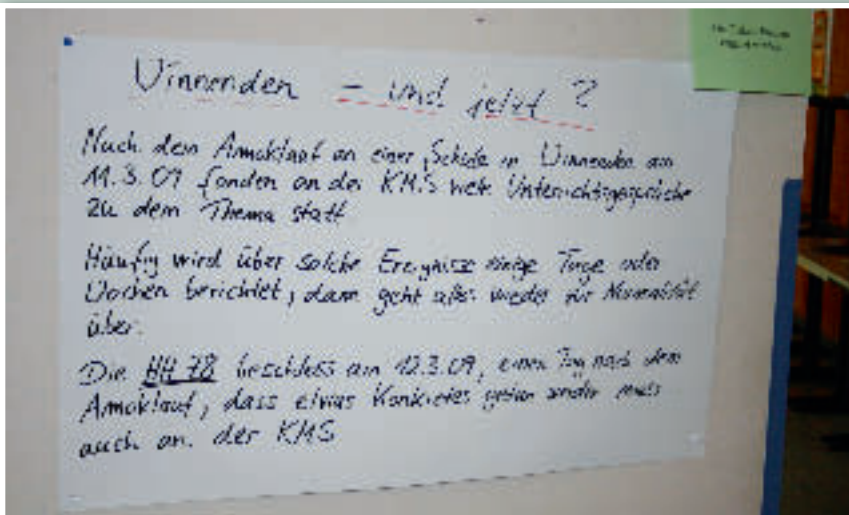 Winnenden - und jetzt?
Nach dem Amoklauf an einer Schule in Winnenden am
11.3.09 fanden an der KMS viele Unterrichtsgespräche
zu dem Thema statt
Häufig wird über solche Ereignisse einige Tage oder
Wochen berichtet, dann geht alles wieder zur Normalität
über.
Die HH 78 beschloss am 12.3.09, einen Tag nach dem
Amoklauf, dass etwas Konkretes getan werden muss
auch an der KMS